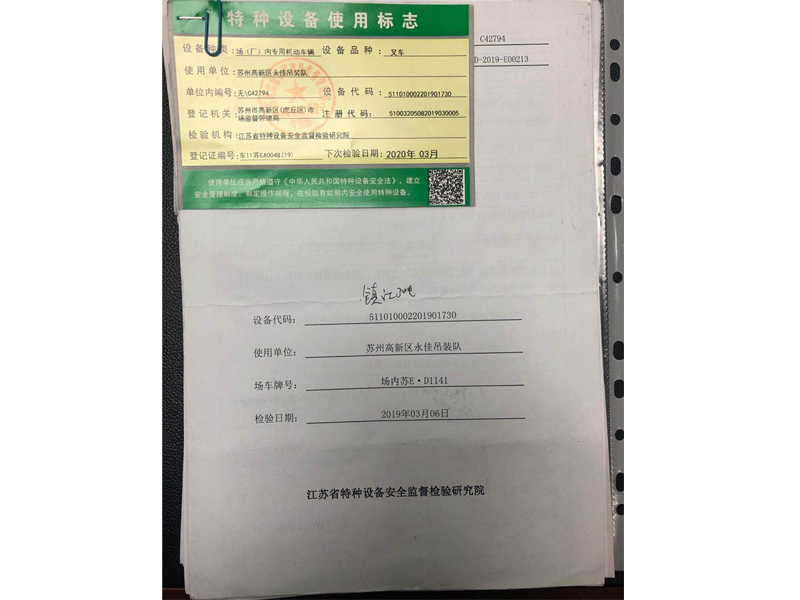 特种设备使用标志
设备种类：场（厂）内专用机动车辆 设备品种： 叉车
使用单位：苏州高新区永佳吊装队
单位内编号：无\C42794 设备代码：511010002201901730
登记机关：苏州市高新区(虎丘区)市场监督管理局 注册代码：51003205082019030005
检验机构：江苏省特种设备安全监督检验研究院
登记证编号：车11苏EA0048(19) 下次检验日期：2020年 03月
使用单位应当严格遵守《中华人民共和国特种设备安全法》，建立
安全管理制度，制定操作规程，在检验有效期内安全使用特种设备。
C42794
D-2019-E00213
镇江
设备代码： 511010002201901730
使用单位： 苏州高新区永佳吊装队
场车牌号： 场内苏E·D1141
检验日期： 2019年03月06日
江苏省特种设备安全监督检验研究院